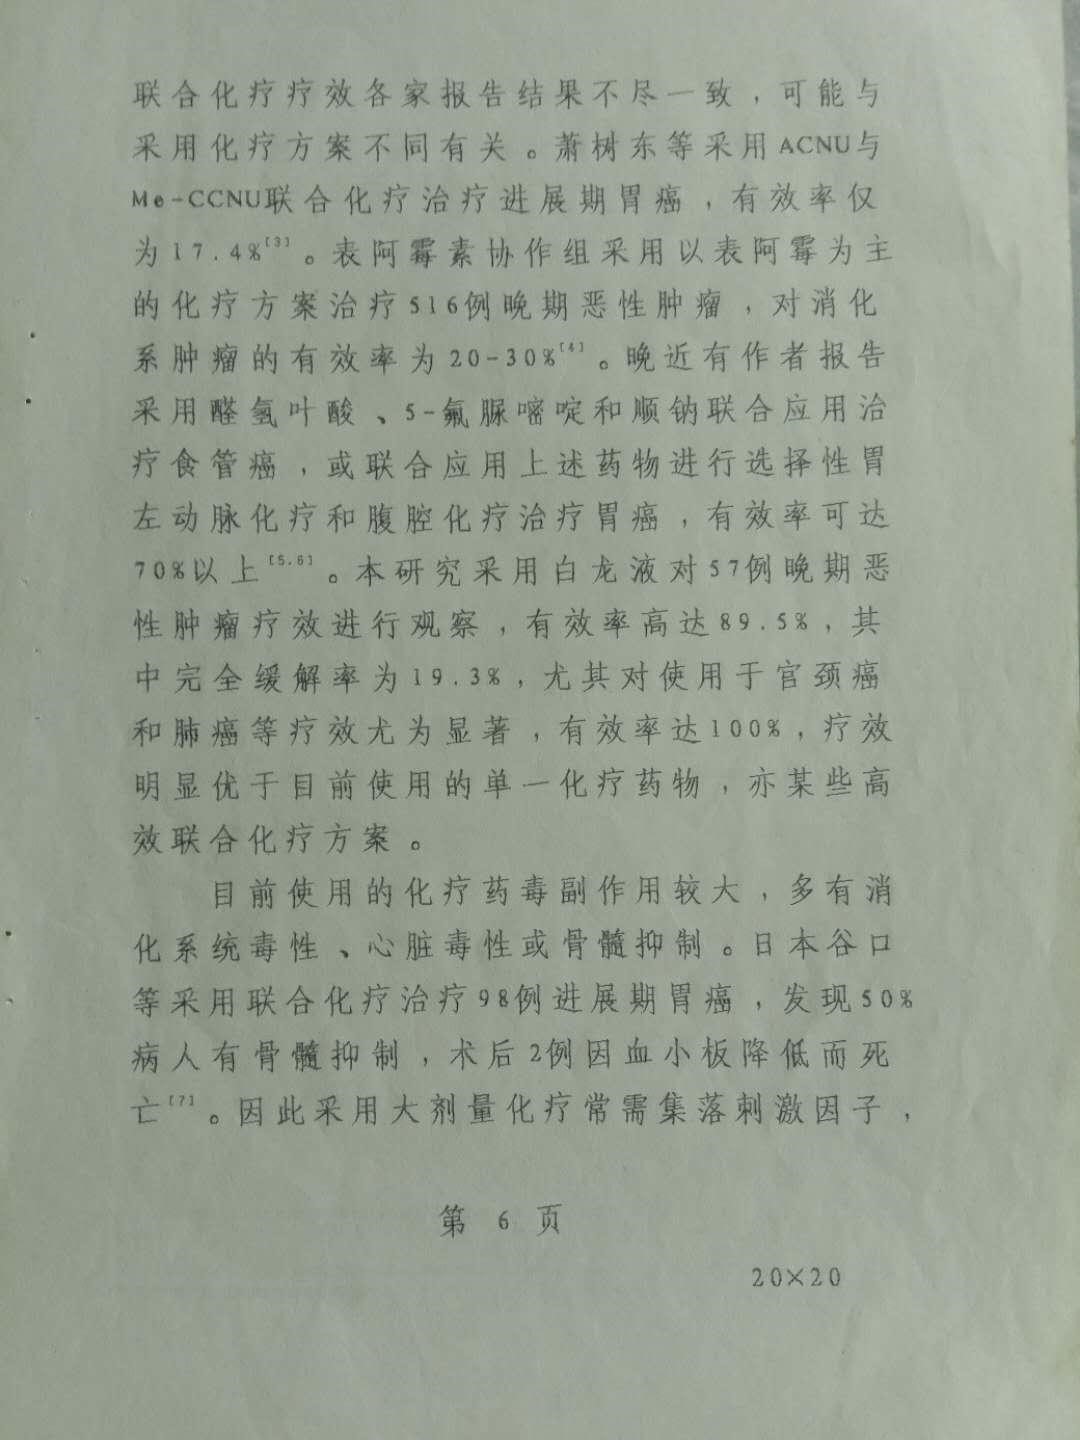 联合化疗疗效各家报告结果不尽一致，可能与
采用化疗方案不同有关。萧树东等采用ACNU与
Me-CCNU联合化疗治疗进展期胃癌，有效率仅
为17.4%[3]。表阿霉素协作组采用以表阿霉为主
的化疗方案治疗516例晚期恶性肿瘤，对消化
系肿瘤的有效率为20-30%[4]。晚近有作者报告
采用醛氢叶酸、5-氟脲嘧啶和顺钠联合应用治
疗食管癌，或联合应用上述药物进行选择性胃
左动脉化疗和腹腔化疗治疗胃癌，有效率可达
70%以上[5.6]。本研究采用白龙液对57例晚期恶
性肿瘤疗效进行观察，有效率高达89.5%，其
中完全缓解率为19.3%，尤其对使用于官颈癌
和肺癌等疗效尤为显著，有效率达100%，疗效
明显优于目前使用的单一化疗药物，亦某些高
效联合化疗方案。
目前使用的化疗药毒副作用较大，多有消
化系统毒性、心脏毒性或骨髓抑制。日本谷口
等采用联合化疗治疗98例进展期胃癌，发现50%
病人有骨髓抑制，术后2例因血小板降低而死
亡[7]。因此采用大剂量化疗常需集落刺激因子，
第 6 页
20×20